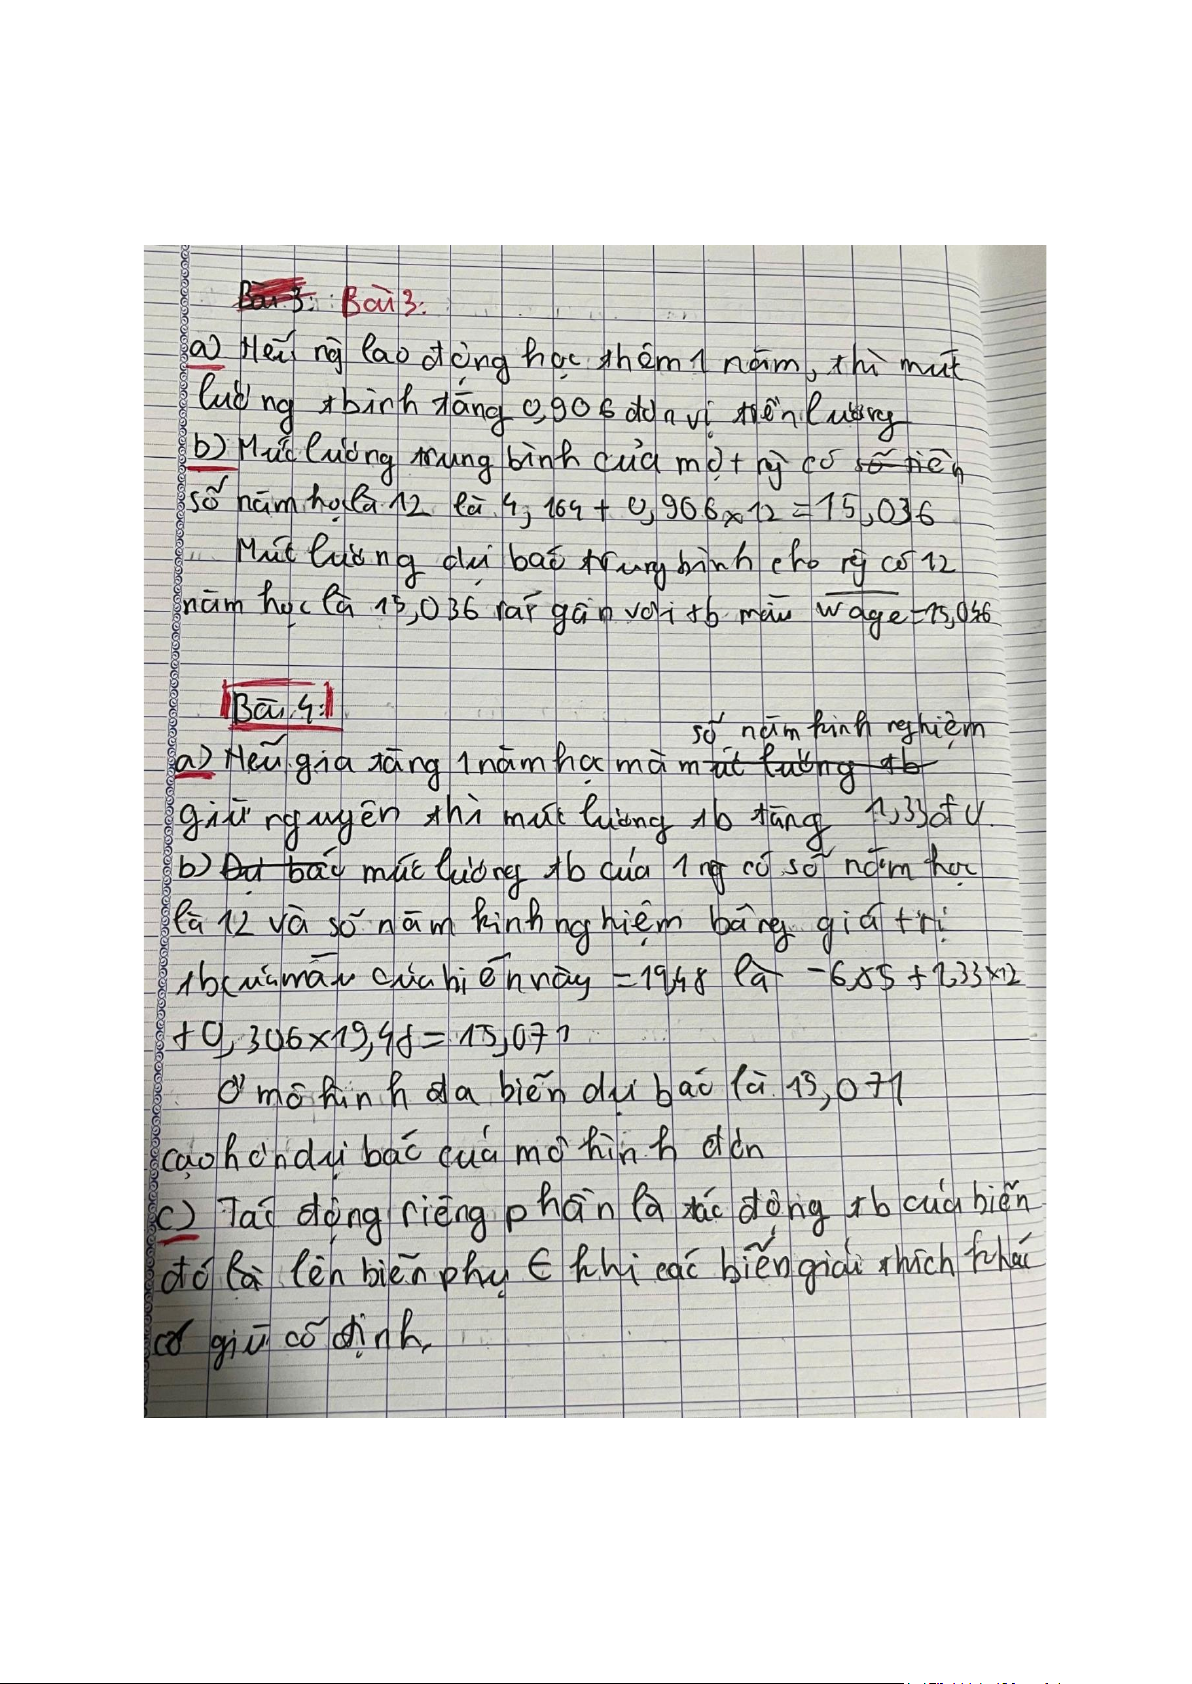 Bài 3: Bài 3:
a) Nếu ng lao động học thêm 1 năm, thì mức
lương tbình tăng 0,906 đơn vị tiền lương
b) Mức lương trung bình của một ng có số tiền
số năm học là 12 là 4,164 + 0,906 x 12 = 15,036
Mức lương dự báo trung bình cho ng có 12
năm học là 15,036 rất gần với tb mẫu wage = 15,046
Bài 4:
số năm kinh nghiệm
a) Nếu gia tăng 1 năm học mà mức lương tb
giữ nguyên thì mức lương tb tăng 1,33 đv.
b) Dự báo mức lương tb của 1 ng có số năm học
là 12 và số năm kinh nghiệm bằng giá trị
tb của mẫu của biến này = 19,48 là - 6,85 + 1,33 x 12
+ 0,306 x 19,48 = 15,071
Ở mô hình đa biến dự báo là 15,071
cao hơn dự báo của mô hình đơn
c) Tác động riêng phần là tác động tb của biến
đó là lên biến phụ ∈ khi các biến giải thích khác
giữ cố định.